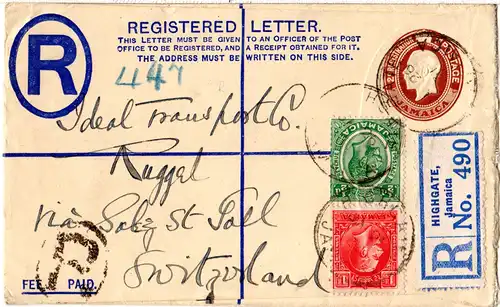 REGISTERED LETTER.
THIS LETTER MUST BE GIVEN TO AN OFFICER OF THE POST
OFFICE TO BE REGISTERED, AND A RECEIPT OBTAINED FOR IT.
THE ADDRESS MUST BE WRITTEN ON THIS SIDE.
R
447
POSTAGE
JAMAICA
Ideal transport Co.
Ruggel
via Salez St Gall
Switzerland
JAMAICA
HIGHGATE,
Jamaica
R No. 490
FEE PAID.